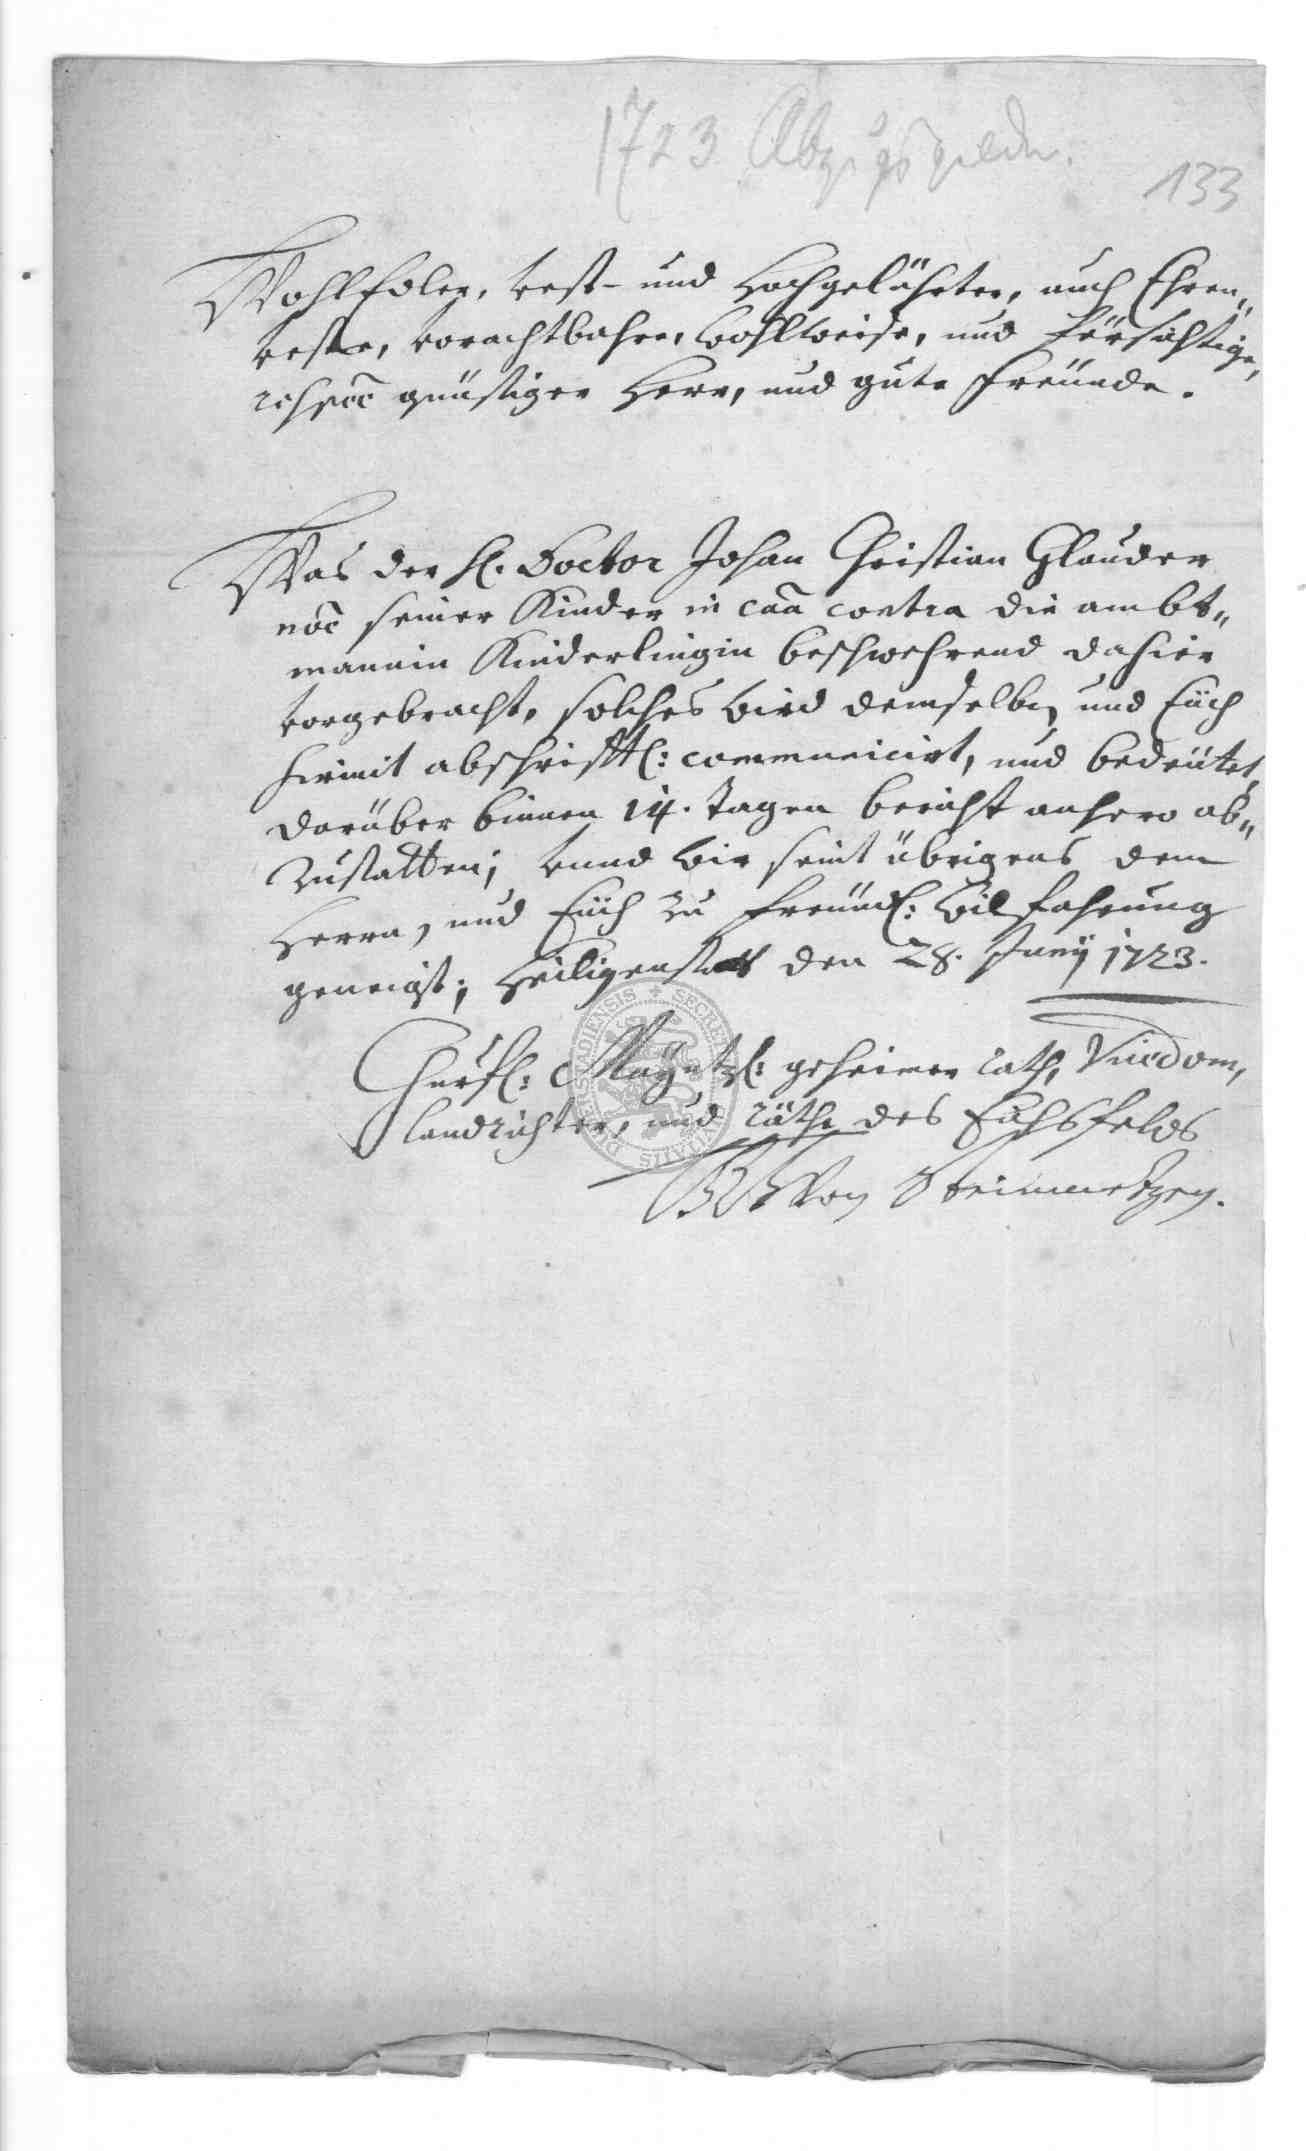 1723 Abzugsgelder.
133
WohlEdler, vest- und Hochgelährter, auch Ehren„
veste, vorachtbahre, wohlweise, und fürsichtige,
respec̃ günstiger Herr, und gute Freünde.
Was der H. Doctor Johan Christian Glauder
nõe seiner Kinder in cãa contra die ambt„
mannin Kinderlingin beschwehrend dahier
vorgebracht, solches wird demselben, und Eüch
hiemit abschrifftl: communicirt, und bedeütet,
darüber binnen 14. Tagen bericht anhero ab„
zustatten; vnnd wir seint übrigens dem
Herrn, und Eüch zu freündl: wilfahrung
geneigt; Heiligenstatt den 28. Junij 1723.
Churfl: Mayntzl: geheimer rath, Vicedom,
landrichter, und räthe des Eichsfelds
Von Steinmetzen.
SECRET
DIENSTADIENSIS